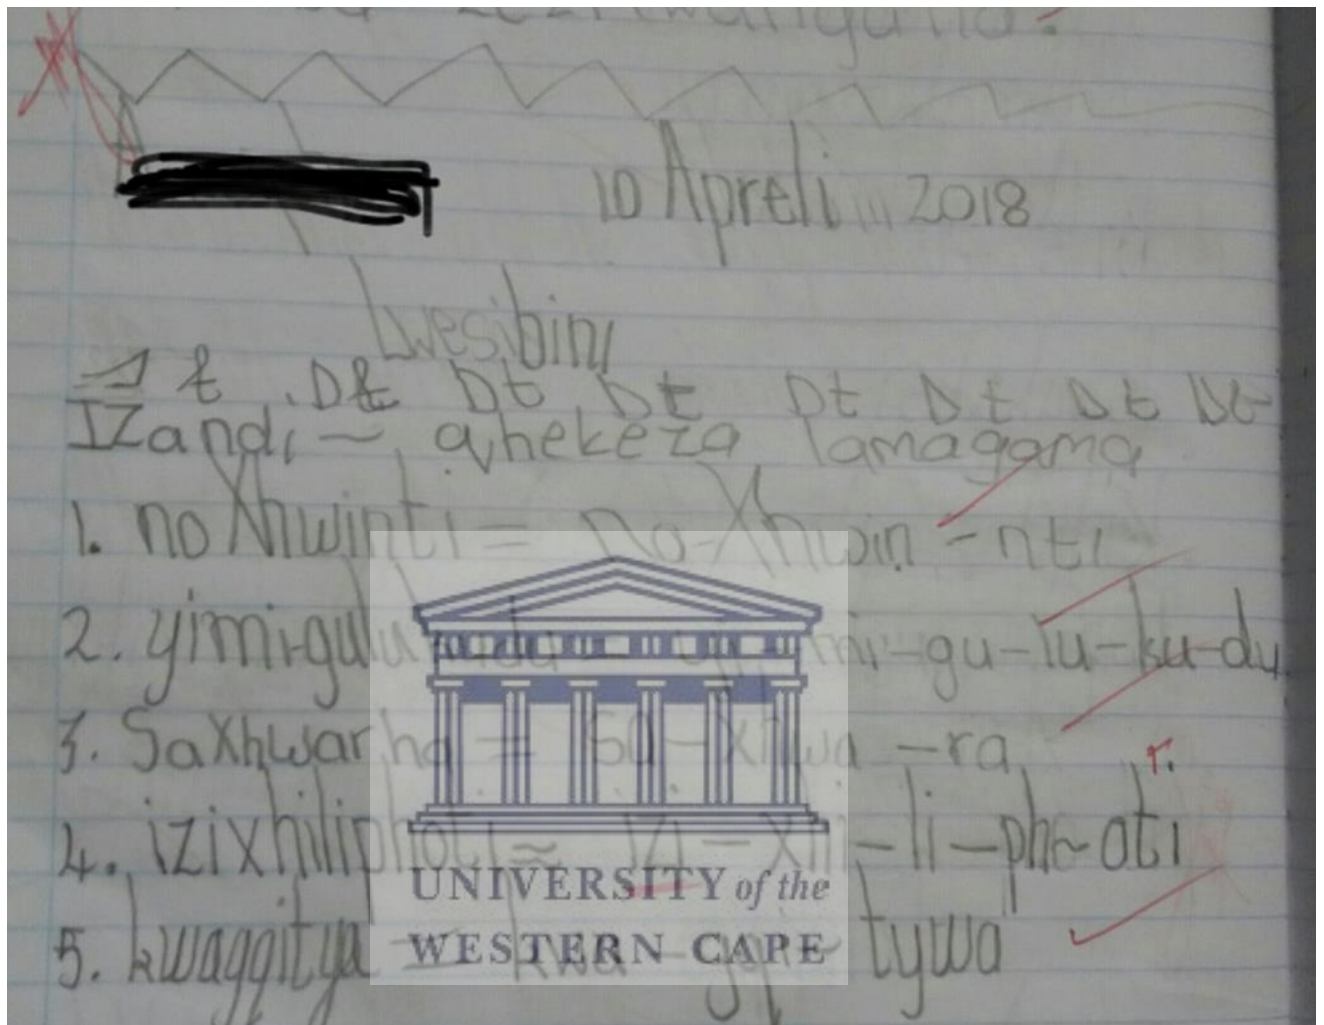 10 Apreli 2018
Lwesibini
Dt Dt Dt Dt Dt Dt Dt
IZandi ~ qhekeza lamagama
1. no Xhwinti = no-Xhwin - nti
2. mi-gu-lu-ku-du
3. SaXhwarha = Sa-xhwa -ra
r.
4. izixhiliphoti = izi - Xhi -li-ph~oti
5. kwaggitya = kwa tywa
UNIVERSITY of the
WESTERN CAPE